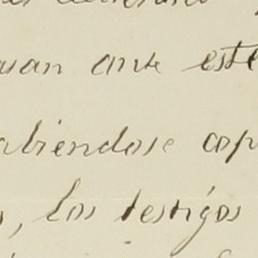 uan ante este
abiendose cop
, los testigos